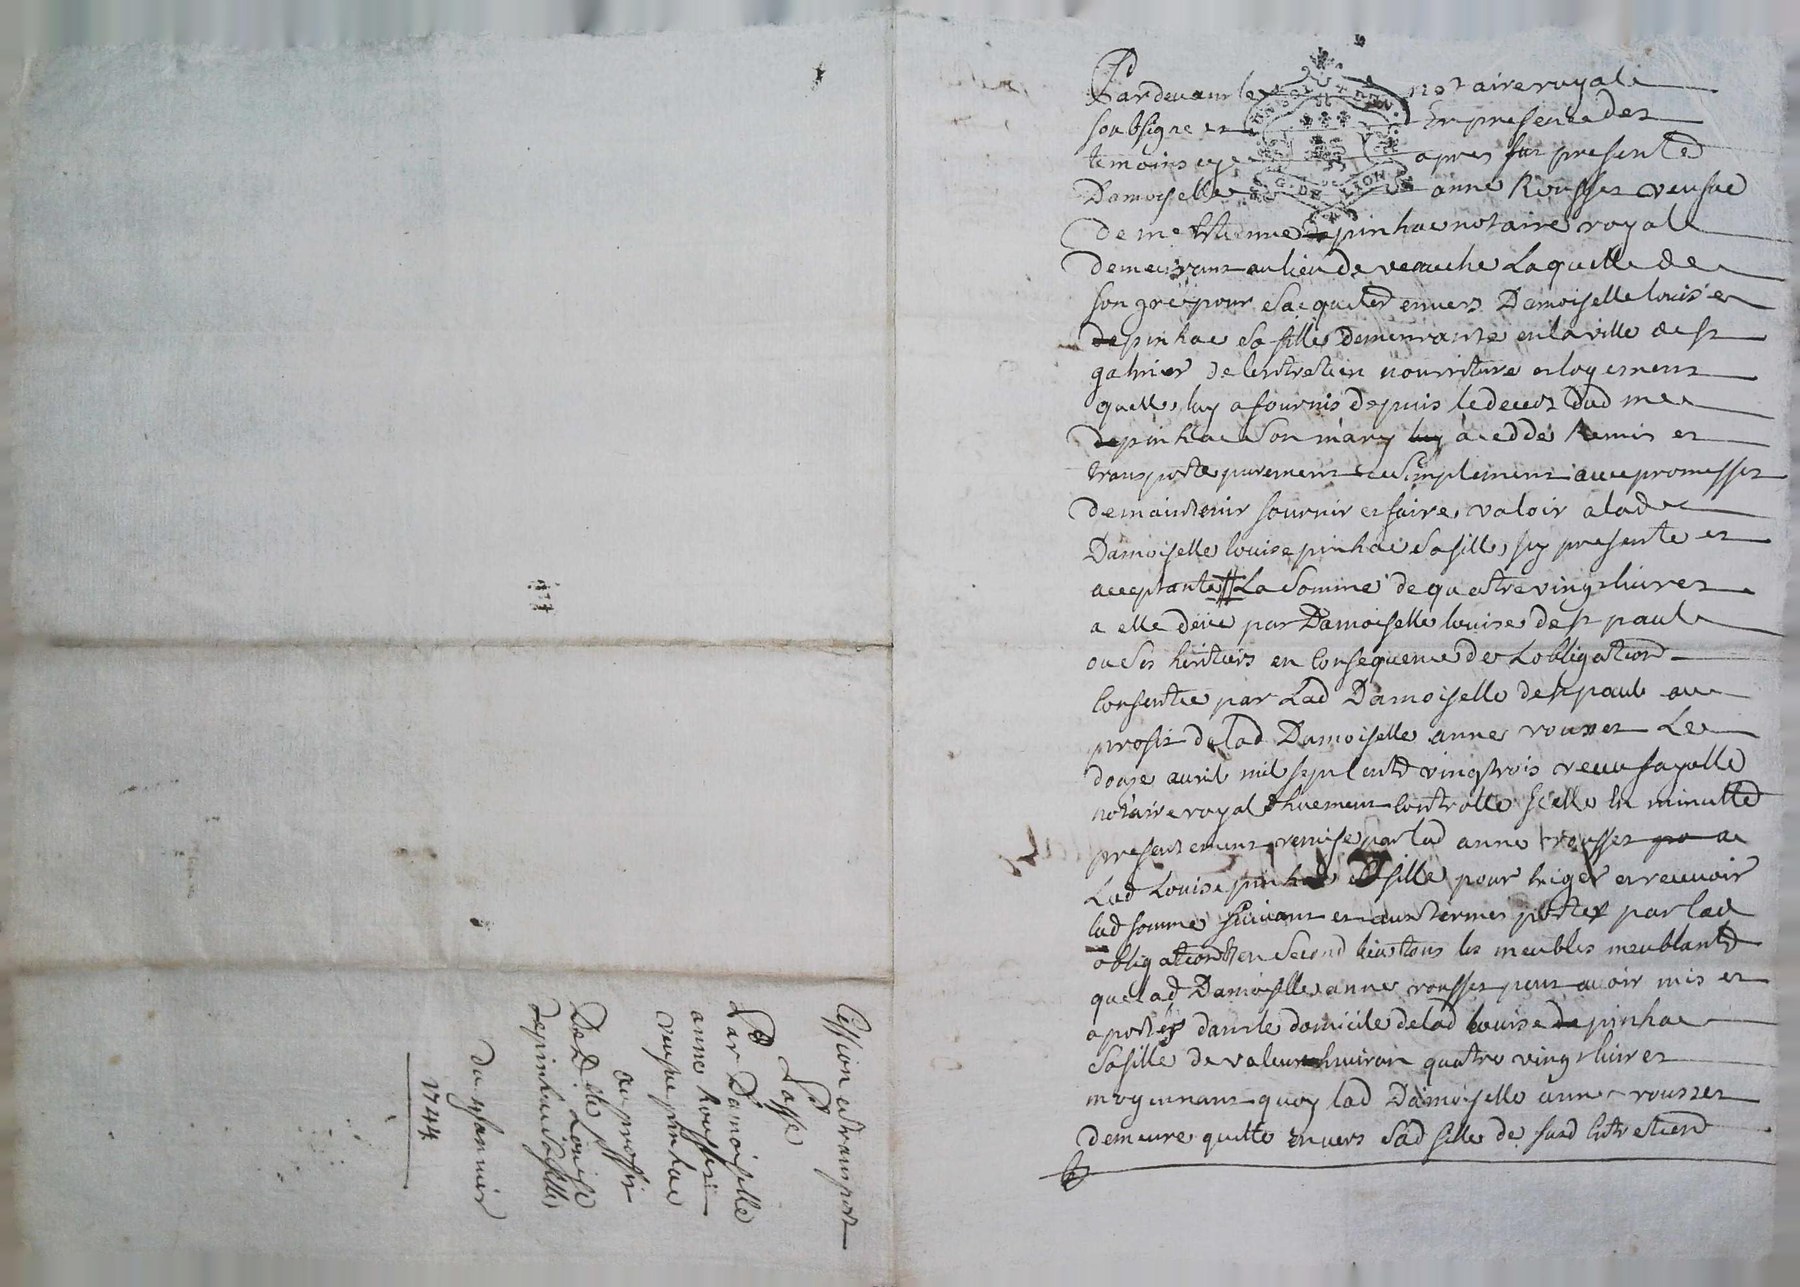 Pardevant le notaire royal
soubsigne et En presence des
temoins cy apres fut presente
Damoiselle anne Rousset veufve
de me Estienne de pinhac notaire royal
demeurant au lieu de veauche Laquelle de
son gre pour Sacquiter envers Damoiselle louise
de pinhac Sa fille demeurante en la ville de st
galmier de lentretien nourriture et logement
quelle luy a fournis depuis le deces dud me
de pinhac Son mary luy a cedde Remis et
transporte purement et Simplement avec promesses
de maintenir fournir et faire valoir a lade
Damoiselle louise pinhac Sa fille, icy presente et
acceptante # La Somme de quatre vingt livres
a elle deüe par Damoiselle louise de st paul
ou Ses heritiers en Consequence de Lobligation
Consentie par Lad Damoiselle de st paul au
profit de lad Damoiselle anne rousset Le
douze avril mil sept cents vingt trois receu fayolle
notaire royal & duement Controlle Icelle En minutte
presentement remise par lad anne rousset po a
Lad Louise pinhac Sa fille pour Exiger et recevoir
lad somme suivant et aux termes portes par lad
obligation & en Second lieu tous les meubles meublants
que lad Damoiselle anne rousset peut avoir mis et
aportes dans le domicile de lad louise de pinhac
Sa fille de valeur Environ quatre vingt livres
moyennant quoy lad Damoiselle anne rousset
demeure quitte envers Sad fille de susd Entretiend
Cession et transport
Passe
Par Damoiselle
anne Rousset
veufve pinhac
au proffit
De Dlle Louise
de pinhac Sa fille
Du janvier
1744
G. DE LION